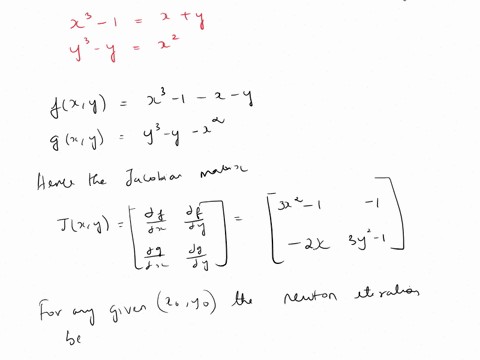 x³ - 1 = x + y
y³ - y = x²
f(x,y) = x³ - 1 - x - y
g(x,y) = y³ - y - x²
Hence the Jacobian matrix
J(x,y) = [ ∂f/∂x ∂f/∂y ] = [ 3x² - 1 -1 ]
[ ∂g/∂x ∂g/∂y ] [ -2x 3y² - 1 ]
For any given (x₀, y₀) the newton iteration
be